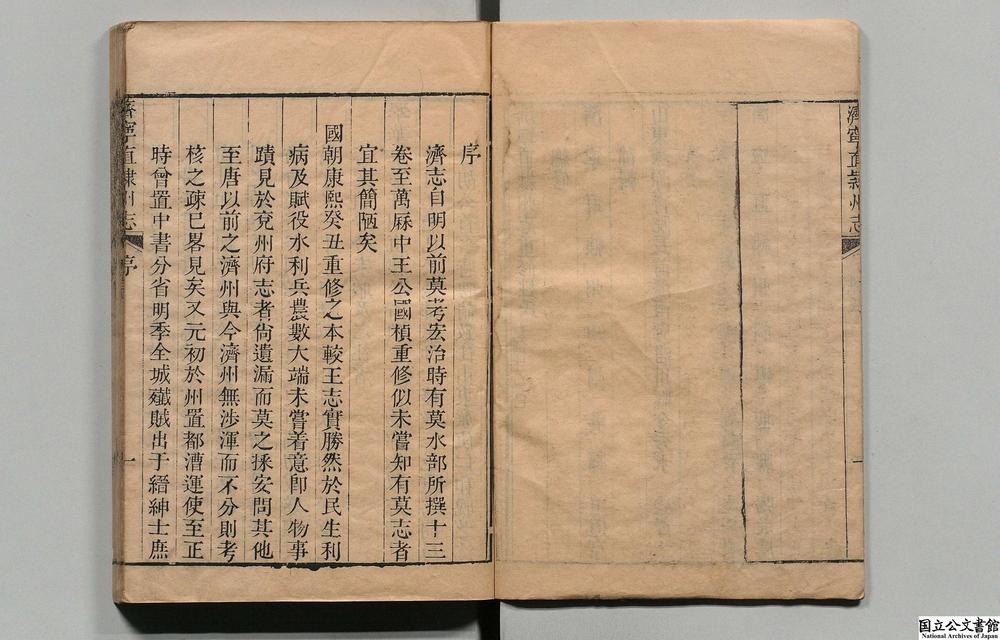 濟寧直隸州志
序
濟志自明以前莫考宏治時有莫水部所撰十三
卷至萬厤中王公國楨重修似未嘗知有莫志者
宜其簡陋矣
國朝康熙癸丑重修之本較王志實勝然於民生利
病及賦役水利兵農數大端未嘗着意卽人物事
蹟見於兗州府志者尙遺漏而莫之採安問其他
至唐以前之濟州與今濟州無涉渾而不分則考
核之疎已畧見矣又元初於州置都漕運使至正
時曾置中書分省明季全城殲賊出于縉紳士庶
濟寧直隸州志
序
一
国立公文書館
National Archives of Japan